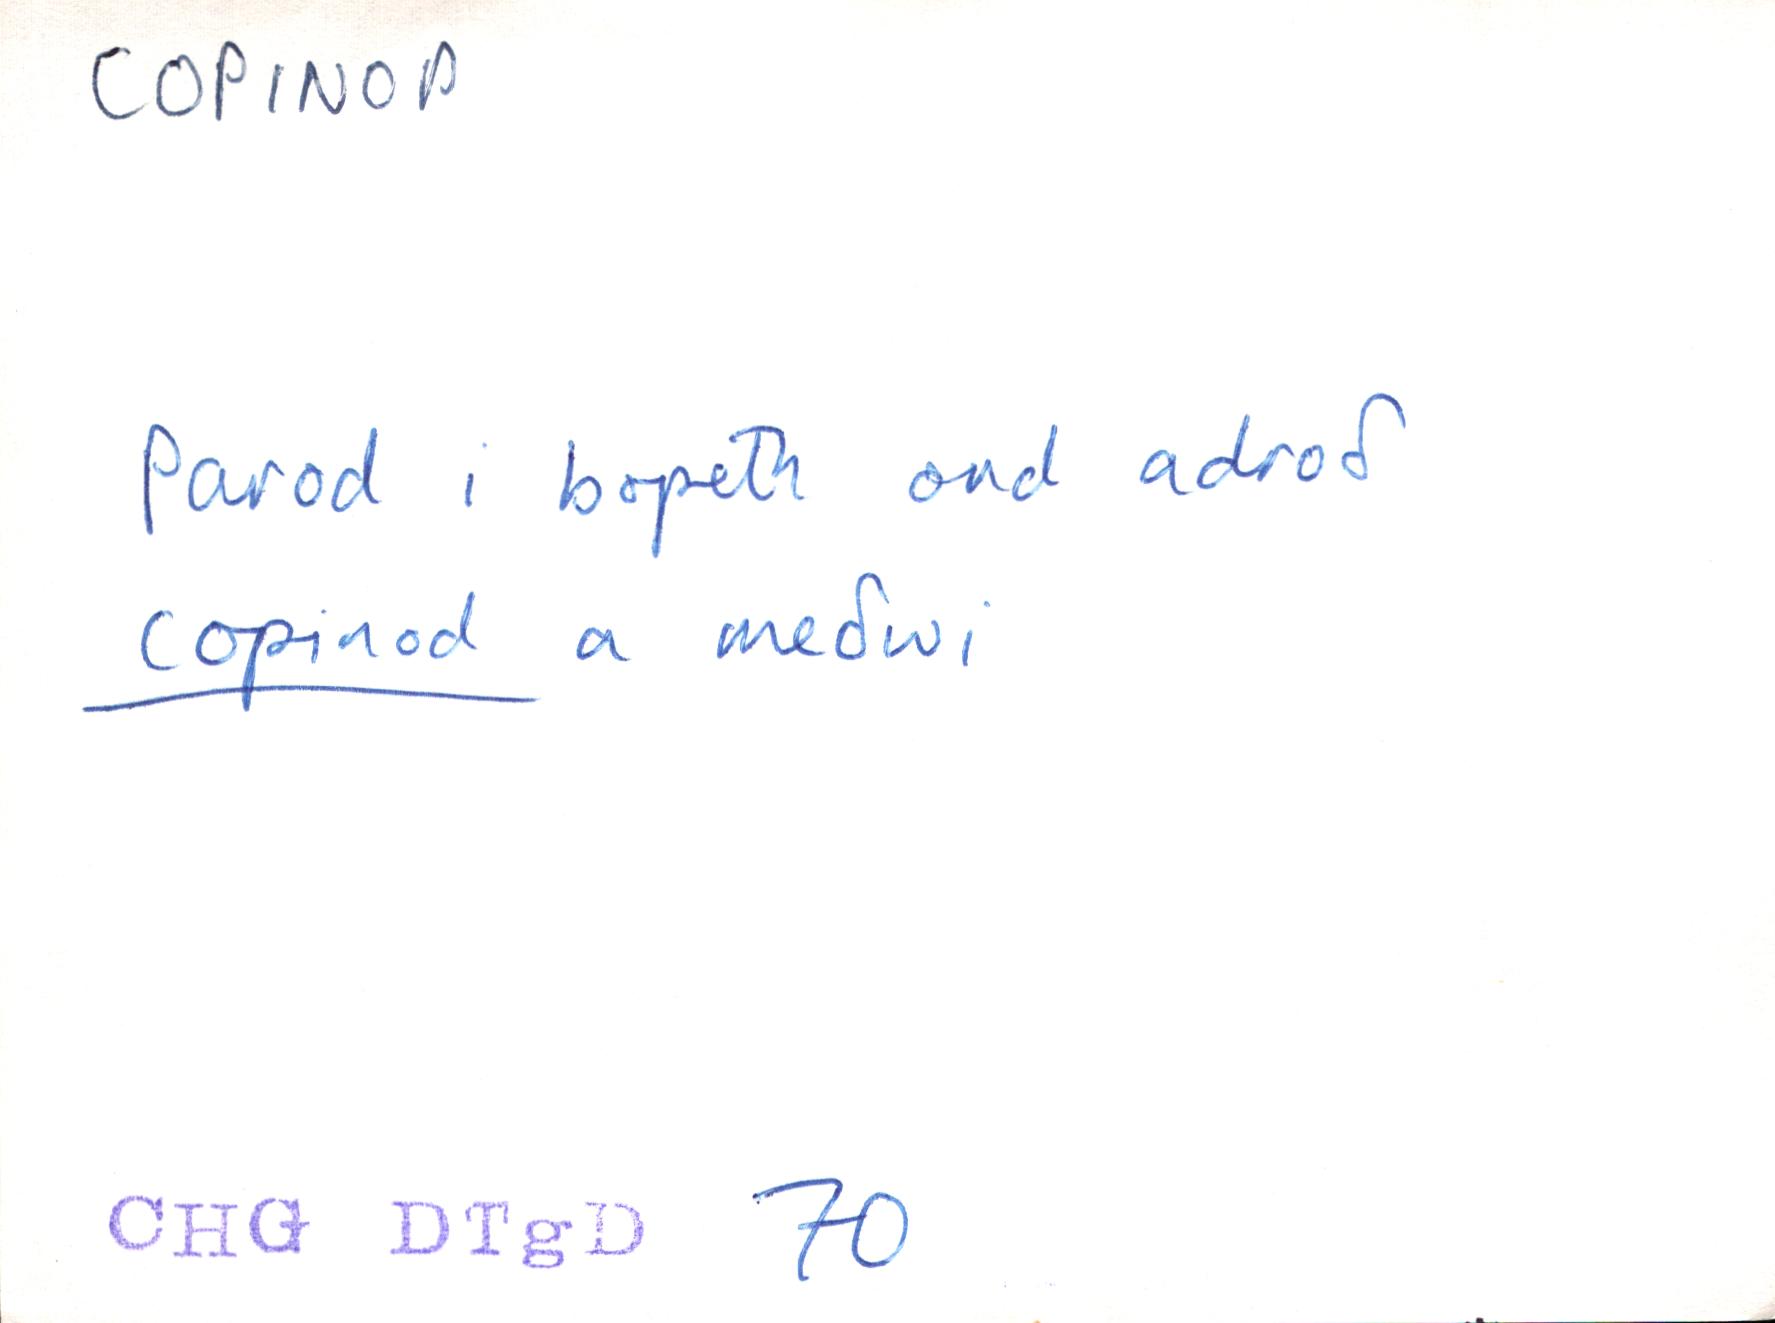 COPINOD
Parod i bopeth ond adroδ
copinod a meδwi
CHG DTgD 70